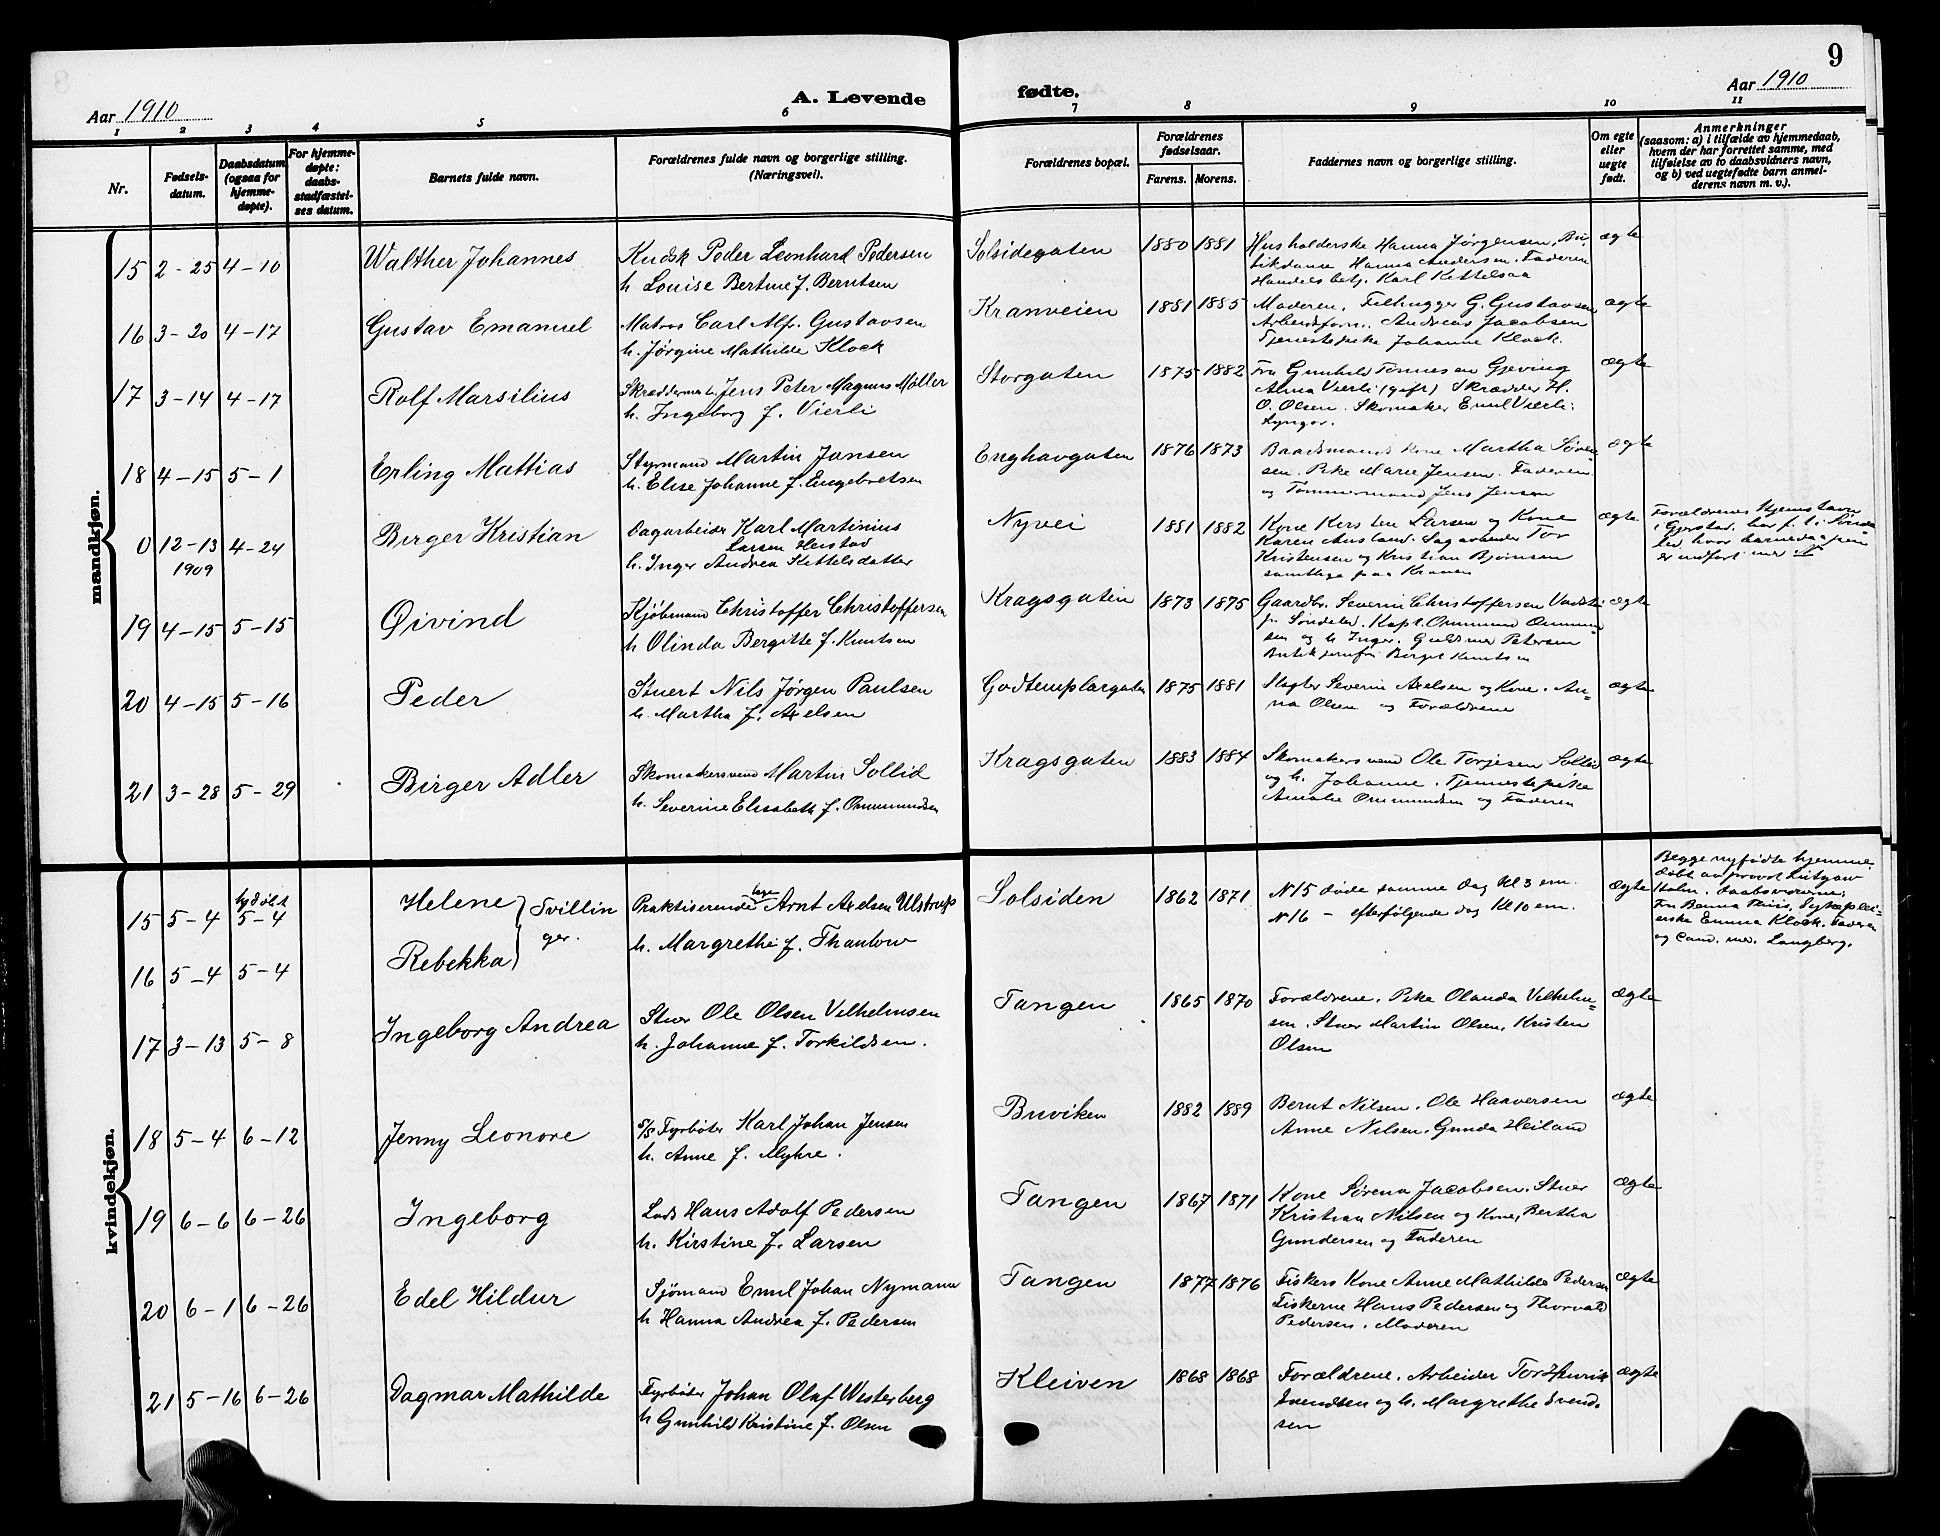 9
Aar 1910
A. Levende
fødte.
Aar 1910
1 2 3 4 5 6 7 8 9 10 11
Nr.
Fødsels-
datum.
Daabsdatum
(ogsaa for
hjemme-
døpte).
For hjemme-
døpte:
daabs-
stadfæstel-
ses datum.
Barnets fulde navn.
Forældrenes fulde navn og borgerlige stilling.
(Næringsvei).
Forældrenes bopæl.
Forældrenes
fødselsaar.
Farens. Morens.
Faddernes navn og borgerlige stilling.
Om egte
eller
uegte
født.
Anmerkninger
(saasom: a) i tilfælde av hjemmedaab,
hvem der har forrettet samme, med
tilføielse av to daabsvidners navn,
og b) ved uegtefødte barn anmel-
derens navn m. v.).
mandkjøn.
15 2-25 4-10 Walther Johannes
Kudsk Peder Leonhard Pedersen
h. Louise Bertine f. Berntsen
Solsidegaten 1880 1881
Husholderske Hanna Jørgensen, Bu-
tikdame Hanna Andersen. Faderen
Handelsbetj. Karl Kittelsaa
ægte
16 3-20 4-17 Gustav Emanuel
Matros Carl Alf. Gustavsen
h. Jørgine Mathilde Klock
Kranveien 1881 1885
Moderen, Filhugger G. Gustavsen
Arbeidsform. Andreas Jacobsen
Tjenestepike Johanne Klock.
ægte
17 3-14 4-17 Rolf Marsilius
Skræddermester Jens Peter Magnus Møller
h. Ingeborg f. Vierli
Storgaten 1875 1882
Fru Gunhild Tønnesen Gjeving
Alma Vierli (gift) Skrædder H.
O. Olsen. Skomaker Emil Vierli.
Lyngør.
ægte
18 4-15 5-1 Erling Mattias
Styrmand Martin Jansen
h. Elise Johanne f. Engebretsen
Enghavgaten 1876 1873
Baadsmands kone Martha Søren-
sen. Pike Marie Jensen. Faderen
og Tømmermand Jens Jensen
ægte
0 12-13 4-24 Birger Kristian
1909
Dagarbeider Karl Martinius
Larsen Heistad
h. Inger Andrea Kittelsdatter
Nyvei 1881 1882
Kone Kirsten Larsen og Kone
Karen Ausland. Sagarbeider Tor
Kristensen og Kristian Bjørnsen
samtlige paa Kranen
ægte
Forældrenes hjemstavn
i Gjerstad, har f. t. i Sønde-
led, hvor barnedaapen
er indført med N
19 4-15 5-15 Øivind
Kjøbmand Christoffer Christoffersen
h Olinda Bergitte f. Knutsen
Kragsgaten 1873 1875
Gaardbr. Severin Christoffersen
Søndeled. Kapt. Ommund Ommund-
sen og h. Inger. Guldsmed Petersen
Butikjomfru Birgit Knutsen
ægte
20 4-15 5-16 Peder
Stuert Nils Jørgen Paulsen
h. Martha f. Axelsen
Godtemplargaten 1875 1881
Slagter Severin Axelsen og Kone. An-
na Olsen og Forældrene
ægte
21 3-28 5-29 Birger Adler
Skomakersvend Martin Sollid
h. Severine Elisabeth f. Ommundsen
Kragsgaten 1883 1884
Skomakersvend Ole Torjesen Sollid
og h. Johanne. Tjenestepike
Amalie Ommundsen og Faderen
ægte
kvindekjøn.
15 5-4 hjdøbt 5-4 Helene
Tvillin
ger.
Praktiserende læge Arnt Axelsen Ulstrup
h. Margrethe f. Thaulow
Solsiden 1862 1871
N 15 døde samme dag kl 3 em.
N 16 - efterfølgende dag kl 10 em.
ægte
Begge nyfødte hjemme
døbt av provst Lütgow
Holm. Daabsvidnerne:
Fru Benna Thiis, Sykeplei-
erske Emma Klock. Faderen
og Cand. med. Langberg.
16 5-4 5-4 Rebekka
17 3-13 5-8 Ingeborg Andrea
Stuer Ole Olsen Vilhelmsen
h. Johanne f. Torkildsen.
Tangen 1865 1870
Forældrene. Pike Olanda Vilhelm-
sen. Stuer Martin Olsen, Kristen
Olsen
ægte
18 5-4 6-12 Jenny Leonore
S/S Fyrbøter Karl Johan Jensen
h. Anne f. Myhre.
Buviken 1882 1889
Bernt Nilsen. Ole Haaversen
Anne Nilsen. Gunda Heiland
ægte
19 6-6 6-26 Ingeborg
Lods Hans Adolf Pedersen
h. Kirstine f. Larsen
Tangen 1867 1871
Kone Sørena Jacobsen. Stuer
Kristian Nilsen og Kone, Bertha
Gundersen og Faderen
ægte
20 6-1 6-26 Edel Hildur
Sjømand Emil Johan Nymann
h Hanna Andrea f. Pedersen
Tangen 1877 1876
Fiskers Kone Anne Mathilde Pedersen
Fiskerne Hans Pedersen og Thorvald
Pedersen. Moderen
ægte
21 5-16 6-26 Dagmar Mathilde
Fyrbøder Johan Olaf Westerberg
h Gunhild Kristine f. Olsen
Kleiven 1868 1868
Forældrene. Arbeider Tor Henrik
Svendsen og h. Margrethe Svend-
sen
ægte